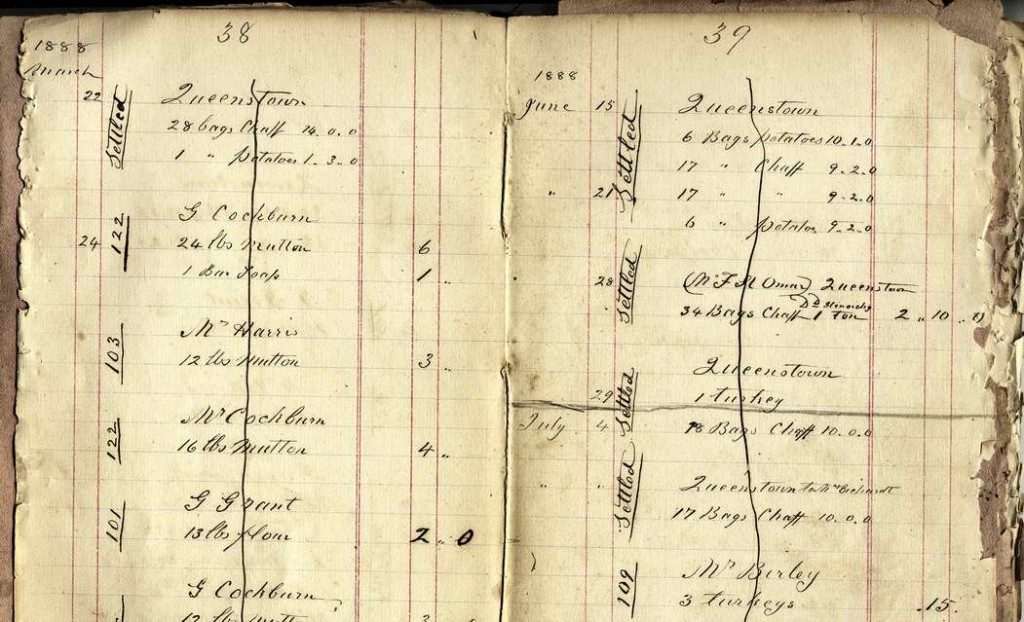 38
1888
March
22 Settled Queenstown
28 bags Chaff 14.0.0
1 " potatoes 1.3.0
122 G Cockburn
24 24 lbs Mutton 6
1 Bar Soap 1 "
103 Mr Harris
12 lbs Mutton 3 "
122 Mr Cockburn
16 lbs Mutton 4 "
101 G Grant
13 lbs flour 2 " 0
G Cockburn
12 lbs Mutt 3
39
1888
June 15 Settled Queenstown
6 Bags potatoes 10.1.0
17 " Chaff 9.2.0
" 21 17 " " 9.2.0
6 " potatoes 9.2.0
" 28 Settled Queenstown
34 Bags Chaff 1 Ton 2 " 10 "
Settled Queenstown
29 1 turkey
July 4 18 Bags Chaff 10.0.0
" " Settled Queenstown
17 Bags Chaff 10.0.0
109 Mr Birley
3 turkeys .15.